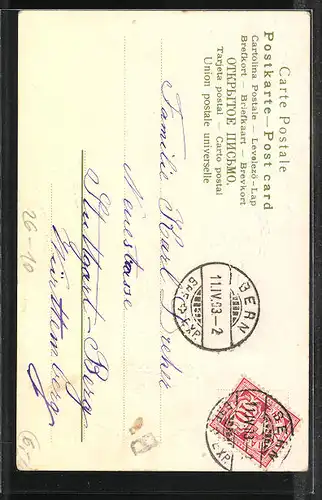 Carte Postale
Postkarte — Post card
Cartolina Postale — Levelező-Lap
Brefkort — Briefkaart — Brevkort
ОТКРЫТОЕ ПИСЬМО.
Tarjeta postal — Carto postal
Union postale universelle
Familie Karl Drehn
Neustrasse
Stuttgart-Berg
Württemberg
26-10
BERN
11.IV.03.-2
BERN